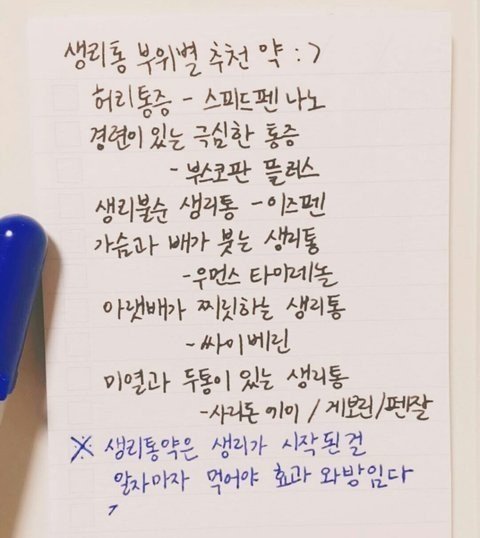 생리통 부위별 추천 약 : >
허리통증 - 스피드펜 나노
경련이 있는 극심한 통증
- 부스코판 플러스
생리불순 생리통 - 이즈펜
가슴과 배가 붓는 생리통
- 우먼스 타이레놀
아랫배가 찌릿하는 생리통
- 싸이베린
미열과 두통이 있는 생리통
- 사리돈 에이 / 게보린 / 펜잘
※ 생리통약은 생리가 시작된걸
알자마자 먹어야 효과 와방임다